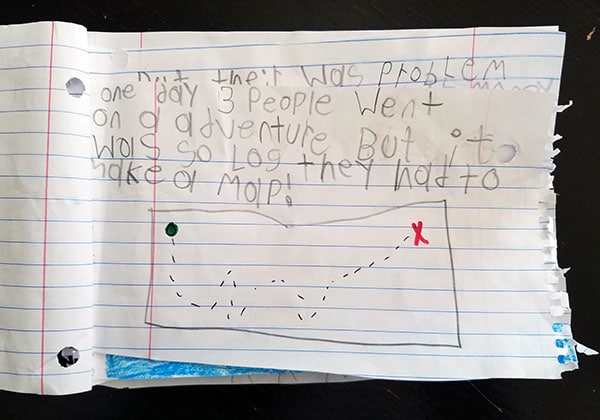 but their was problem
one day 3 People Went
on a adventure But it
was so Log they had to
make a Map!
X